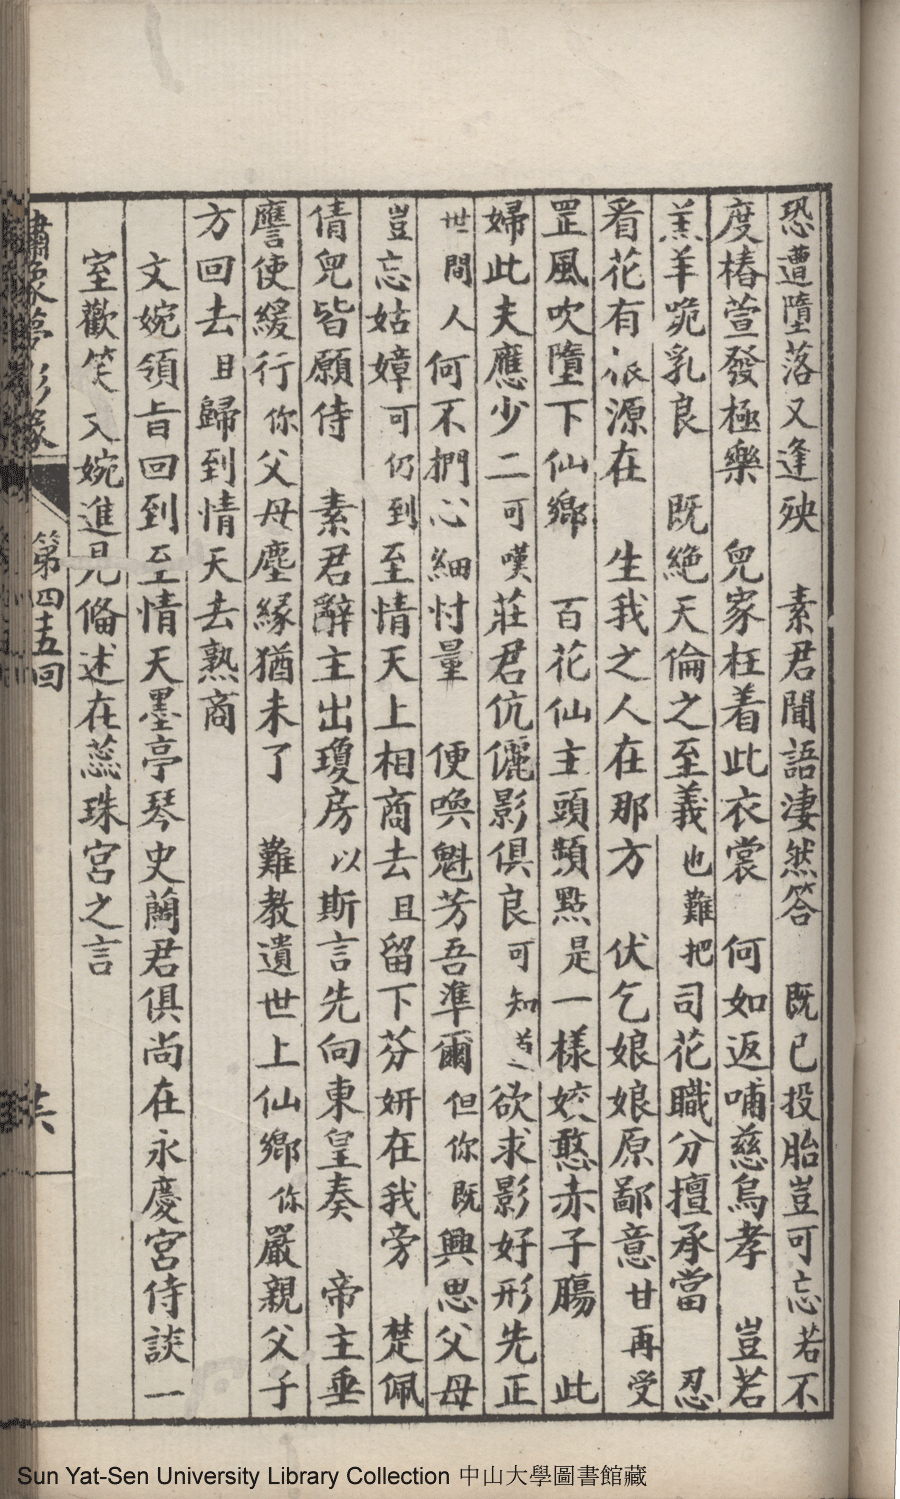 恐遭墮落又逢殃　素君聞語淒然答　既已投胎豈可忘若不
度椿萱發極樂　兒家枉着此衣裳　何如返哺慈烏孝　豈若
羔羊跪乳良　既絶天倫之至義也難把司花職分擅承當　忍
看花有派源在　生我之人在那方　伏乞娘娘原鄙意甘再受
罡風吹墮下仙鄉　百花仙主頭頻點是一樣姣憨赤子腸　此
婦此夫應少二可嘆莊君伉儷影俱良可知道欲求影好形先正
世間人何不捫心細忖量　便喚魁芳吾準爾但你既興思父母
豈忘姑嫜可仍到至情天上相商去且留下芬妍在我旁　楚佩
倩兒皆願侍　素君辭主出瓊房以斯言先向東皇奏　帝主垂
譍使緩行你父母塵緣猶未了　難教遺世上仙鄉你嚴親父子
方回去且歸到情天去熟商
文婉領旨回到至情天墨亭琴史蘭君俱尚在永慶宮侍談一
室歡笑文婉進見備述在蕊珠宮之言
繡像夢影緣
第四十五回
Sun Yat-Sen University Library Collection 中山大學圖書館藏